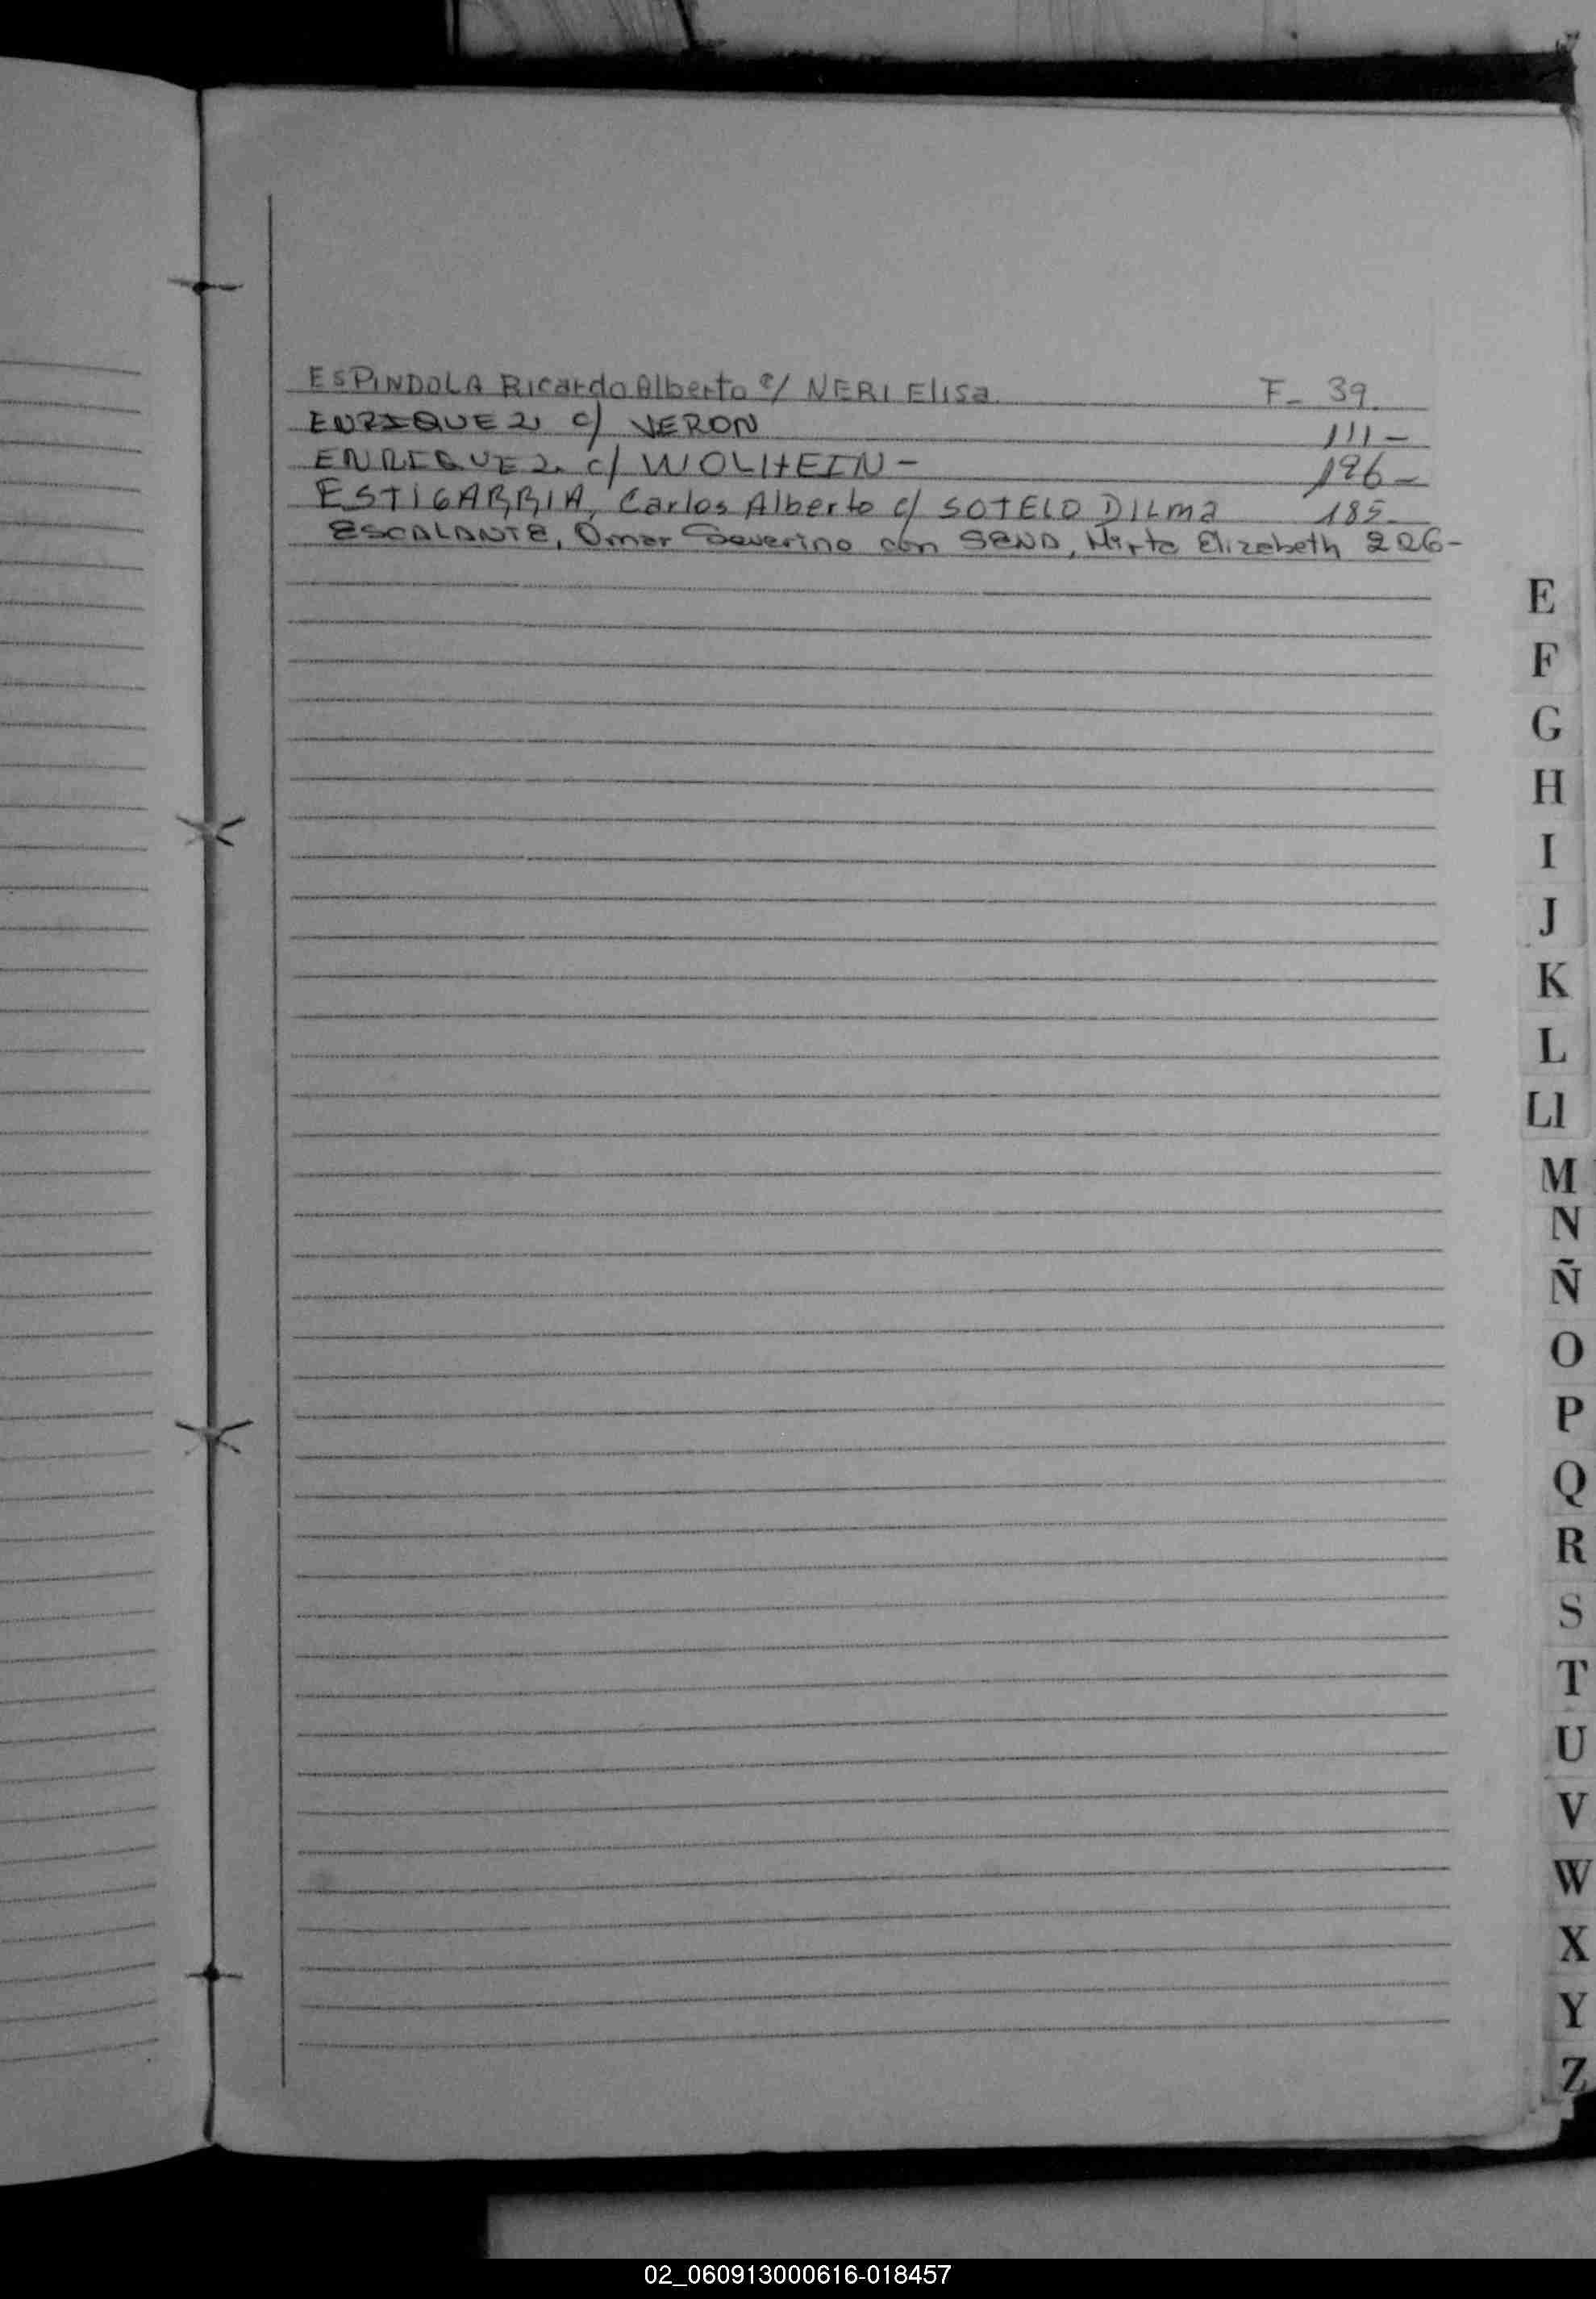 ESPINDOLA Ricardo Alberto c/ NERI Elisa F- 39
ENRIQUEZ c/ VERON 111-
ENRIQUEZ c/ WOLHEIN- 196-
ESTIGARRIBIA, Carlos Alberto c/ SOTELO DILMA 185
ESCALANTE, Omar Severino con SENA, Mirta Elizabeth 226-
E
F
G
H
I
J
K
L
Ll
M
N
Ñ
O
P
Q
R
S
T
U
V
W
X
Y
Z
02_060913000616-018457